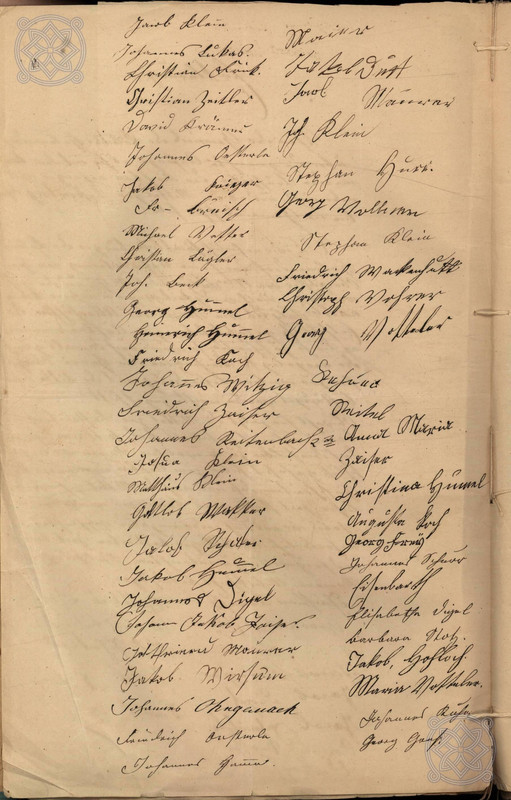 Jacob Klein
Johannes Lukas.
Christian Fünk.
Christian Zeitler
David Krämer
Johannes Oesterle
Jakob Krieger
Fr. Bänisch
Michael Vetter
Christian Lägler
Joh. Beck
Georg Hummel
Heinrich Hummel
Friedrich Koch
Johannes Witzig
Friedrich Zaiser
Johannes Reitenbach
Josua Klein
Matthäus Klein
Gottlob Walker
Jakob Schäfer
Jakob Hummel
Johannes Digel
Johann Jakob Zaiser.
Gottfried Maurer
Jakob Wirsum
Johannes Ohngemach
Friedrich Oesterle
Johannes
Maier
Jakob Durst
Jacob Maurer
Jh. Klein
Stephan Huri.
Georg Vollmer
Stephan Klein
Friedrich Wackenhutt
Christoph Vohrer
Georg Votteler
Seitel
Anna Maria
Zaiser
Christina Hummel
Augusta Koch
Georg Frey
Johannes Schnorr
Eisenbarth
Elisabetha Digel
Barbara Stotz.
Jakob. Hohloch
Maria Votteler.
Johannes
Georg